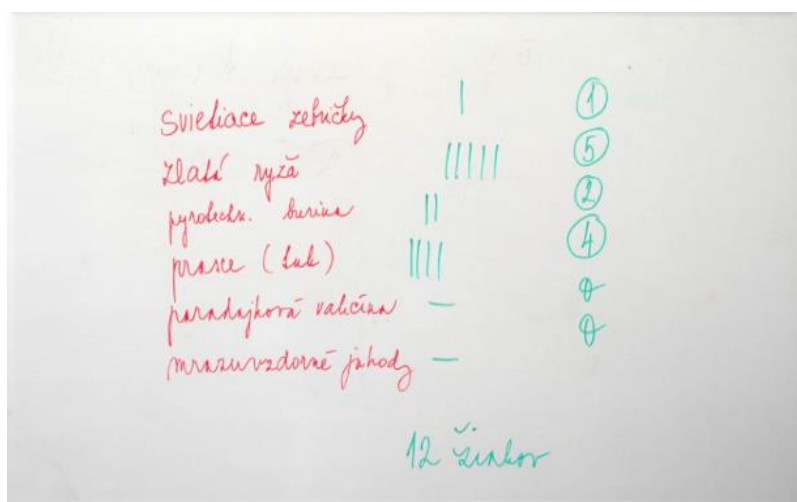 svietiace zebričky | 1
zlatá ryža ||||| 5
pyrotechn. burina || 2
prasce (tuk) |||| 4
paradajková vakcína — 0
mrazuvzdorné jahody — 0
12 žiakov